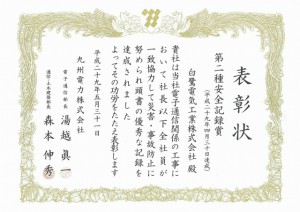 表彰状
第二種安全記録賞
(平成二十九年四月三十日達成)
白鷺電気工業株式会社 殿
貴社は当社電子通信関係の工事に
おいて社長以下全社員が
一致協力して災害・事故防止に
努められ頭書の優秀な記録を
達成されました
よってその功労をたたえ表彰します
平成二十九年五月三十一日
九州電力株式会社
電子通信部長
湯越眞一
通信・土木建築部長
森本伸秀